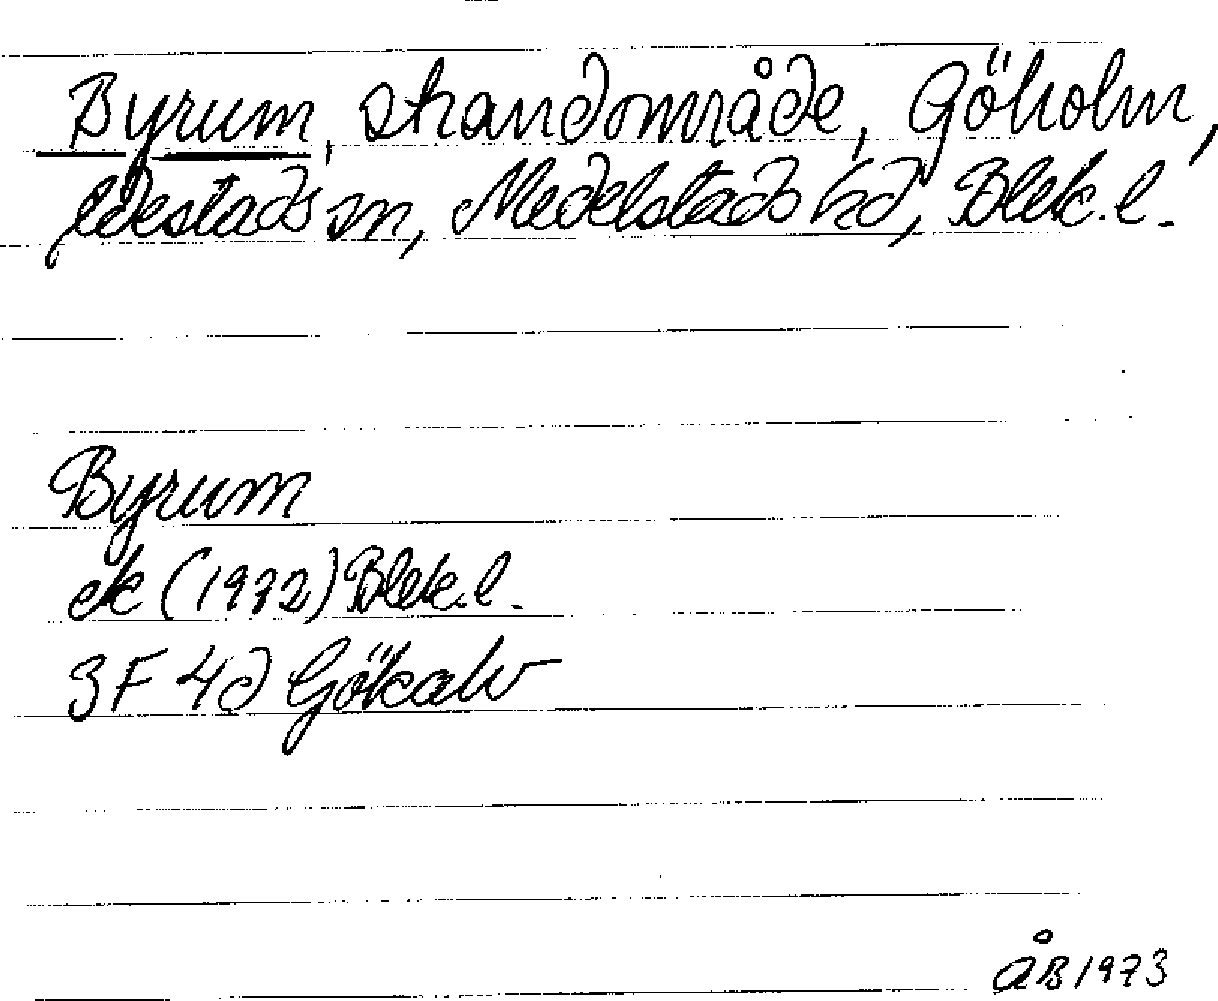 Byrum, strandområde, Göholm,
Edestads sn, Medelstads hd, Blek. l.
Byrum
ek (1972) Blek. l.
3F 4d Gökalv
ÅB 1973